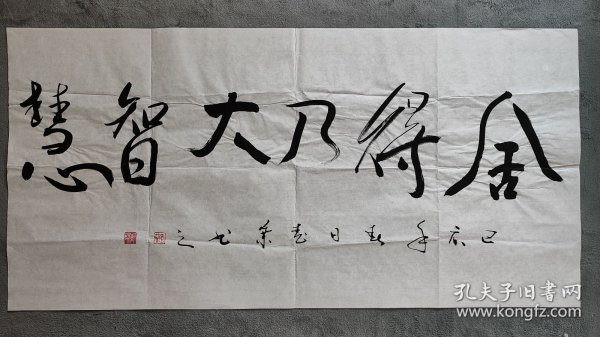 舍得乃大智慧
己亥年春日书之
孔夫子旧书网
www.kongfz.com